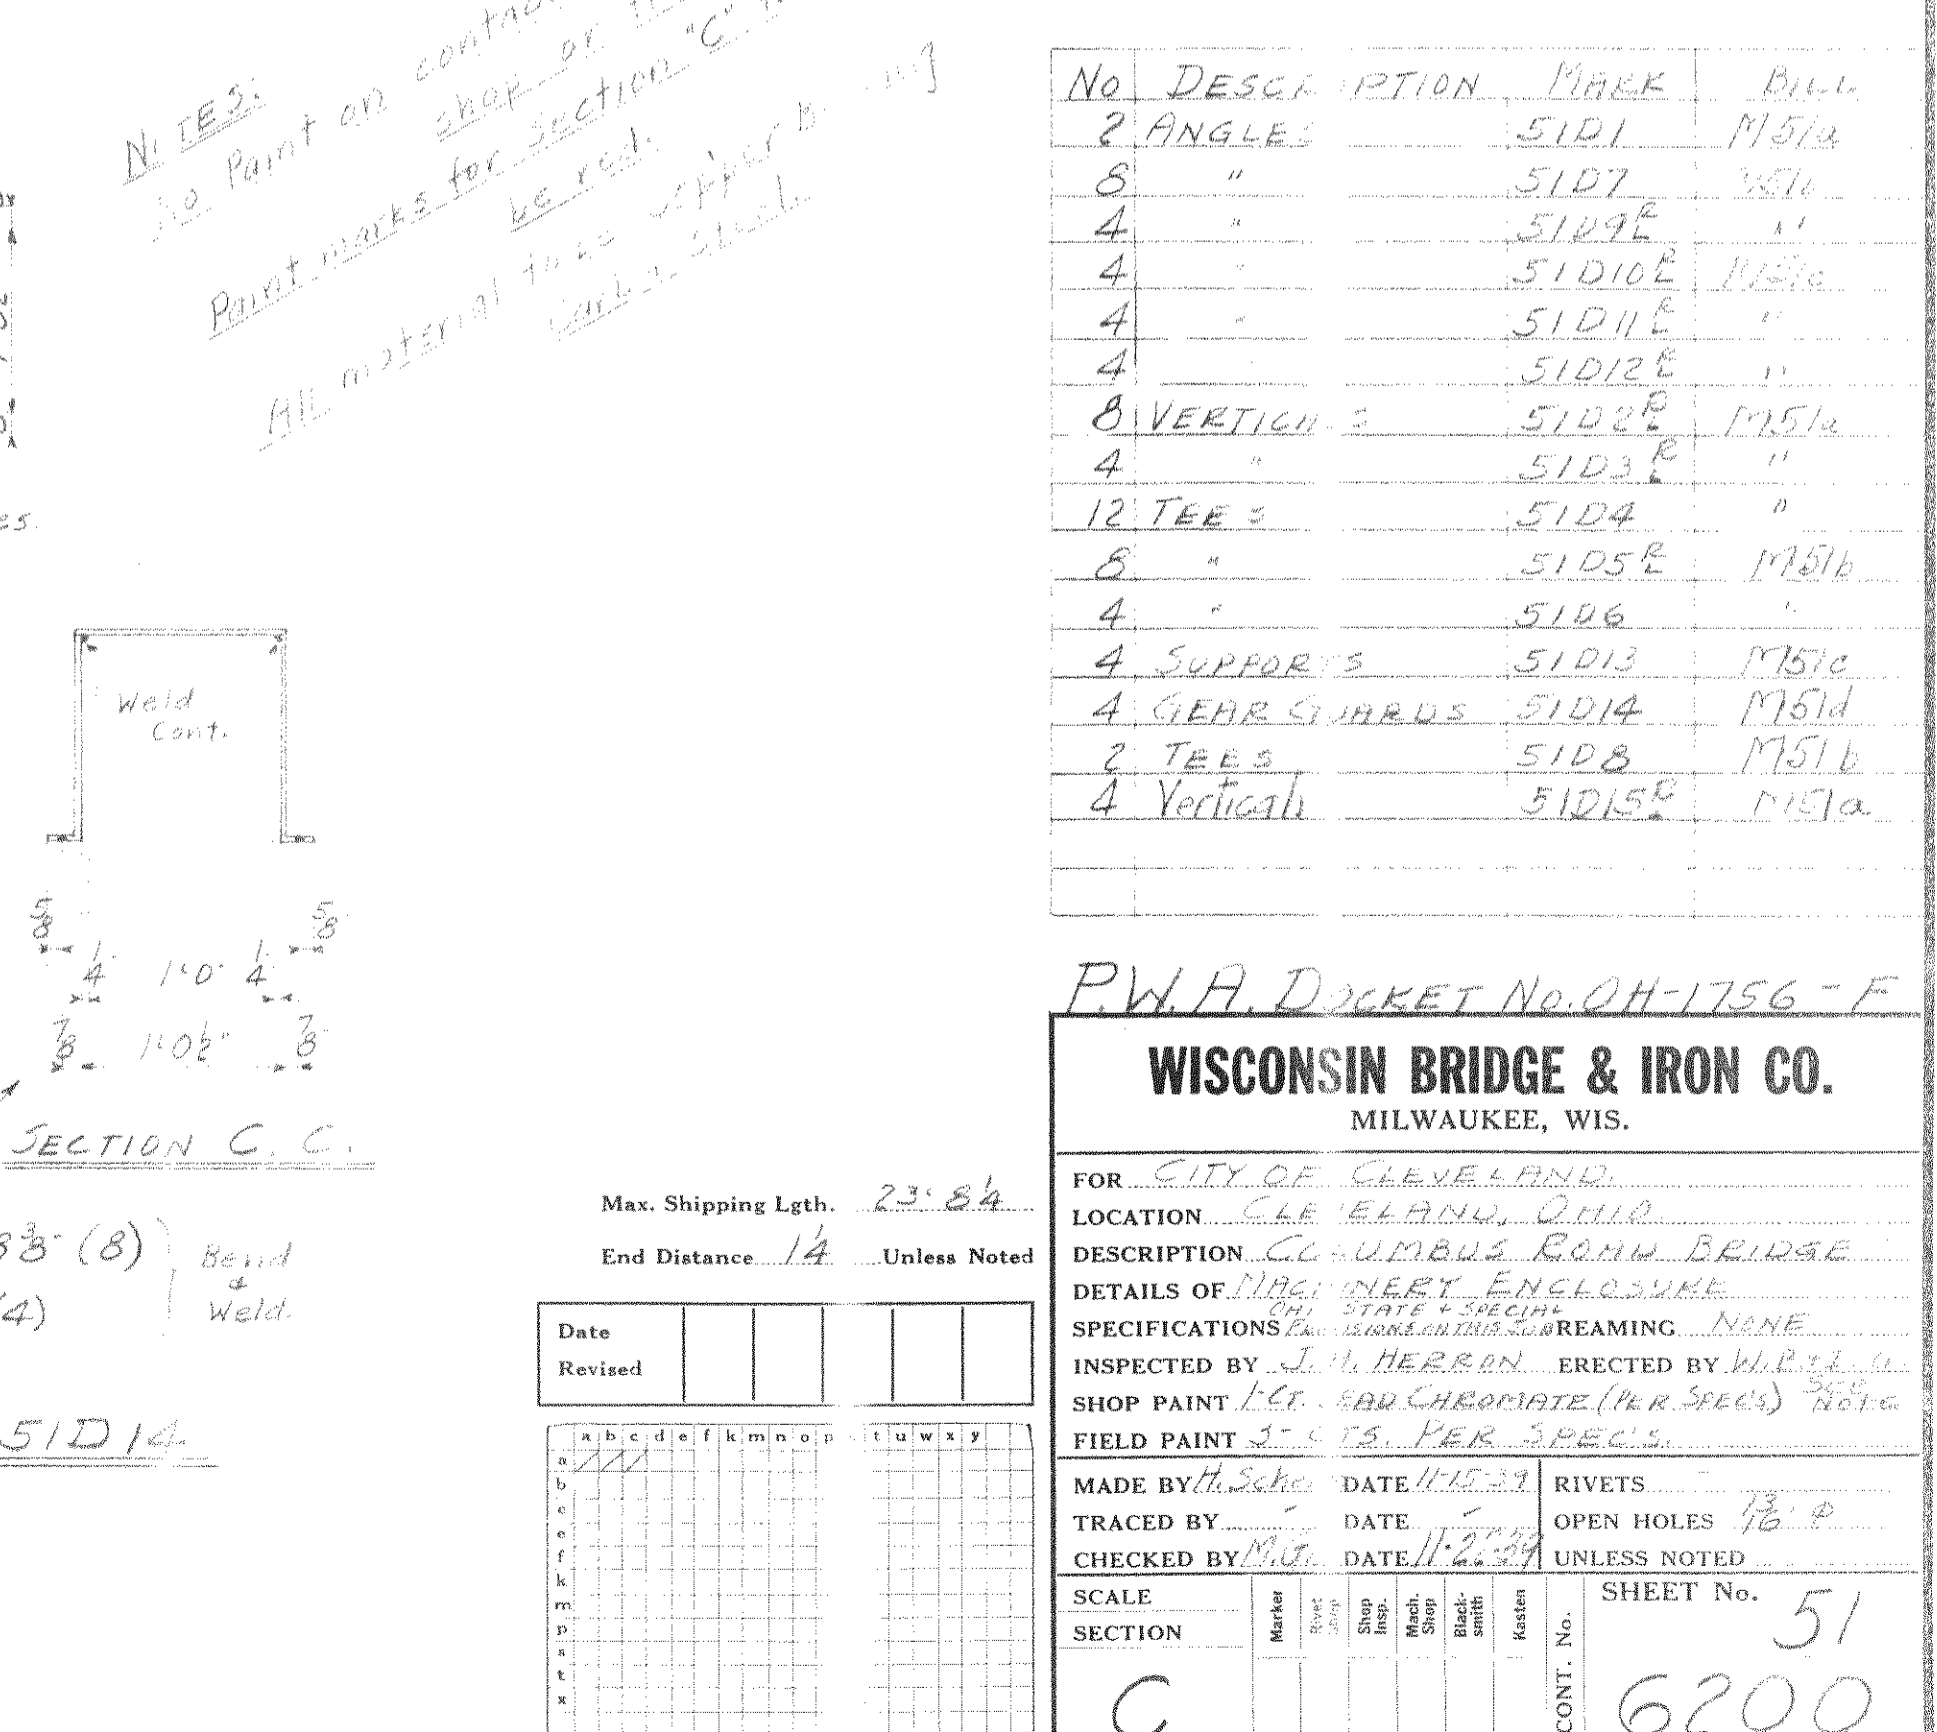 NOTES:
No Paint on
shop or
Paint marks for Section "C"
be red.
All material to be copper bearing
Carbon Steel.
Weld
Cont.
5/8 5/8
1/4 1'0" 1/4
7/8 1'0½" 7/8
SECTION C. C.
3/8" (8)
(4)
Bend
&
Weld.
51D14
No DESCRIPTION MARK BILL
2 ANGLES 51D1 M51a
8 " 51D7 M51b
4 " 51D9 R/L "
4 " 51D10 R/L M51c
4 " 51D11 R/L "
4 51D12 R/L "
8 VERTICALS 51D2 R/L M51a
4 " 51D3 R/L "
12 TEES 51D4 "
8 " 51D5 R/L M51b
4 " 51D6 "
4 SUPPORTS 51D13 M51c
4 GEAR GUARDS 51D14 M51d
2 TEES 51D8 M51b
4 Verticals 51D15 R/L M51a
P.W.A. DOCKET No. OH-1756-F
WISCONSIN BRIDGE & IRON CO.
MILWAUKEE, WIS.
FOR CITY OF CLEVELAND.
LOCATION CLEVELAND, OHIO
DESCRIPTION COLUMBUS ROAD BRIDGE
DETAILS OF MACHINERY ENCLOSURE
SPECIFICATIONS OHIO STATE + SPECIAL PROVISIONS ON THIS JOB REAMING NONE
INSPECTED BY J. H. HERRON ERECTED BY W.B.&I. Co.
SHOP PAINT 1-CT. LEAD CHROMATE (PER SPEC'S) SEE NOTE
FIELD PAINT 3-CTS. PER SPEC'S.
MADE BY H. DATE 11-15-39 RIVETS
TRACED BY - DATE - OPEN HOLES 13/16" Φ
CHECKED BY M.J. DATE UNLESS NOTED
SCALE
SECTION
C
Marker
Rivet Shop
Shop Insp.
Mach. Shop
Black-smith
Kasten
CONT. No.
SHEET No. 51
6200
Max. Shipping Lgth. 23' 8¼
End Distance 1¼ Unless Noted
Date
Revised
a b c d e f k m n o p t u w x y
a
b
c
e
f
k
m
p
s
t
x